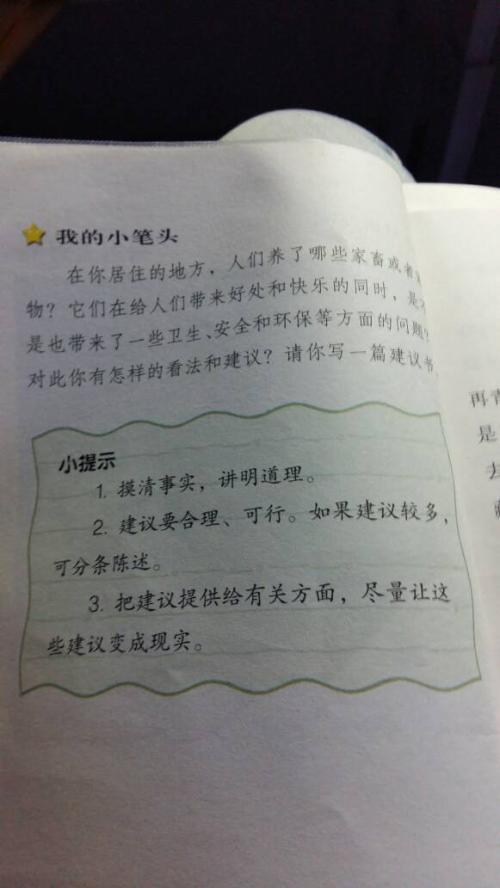 我的小笔头
在你居住的地方，人们养了哪些家畜或者
物？它们在给人们带来好处和快乐的同时，是
是也带来了一些卫生、安全和环保等方面的问题？
对此你有怎样的看法和建议？请你写一篇建议书
小提示
1. 摸清事实，讲明道理。
2. 建议要合理、可行。如果建议较多，
可分条陈述。
3. 把建议提供给有关方面，尽量让这
些建议变成现实。
再
是
去